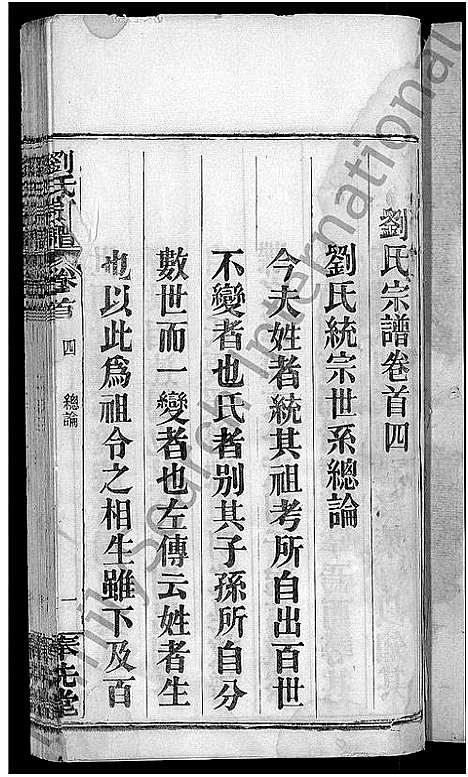 劉氏宗譜卷首四
劉氏統宗世系總論
今夫姓者統其祖考所自出百世
不變者也氏者别其子孫所自分
數世而一變者也左傳云姓者生
也以此爲祖令之相生雖下及百
劉氏宗譜 卷首 四 總論 一 奉先堂
Family Search International